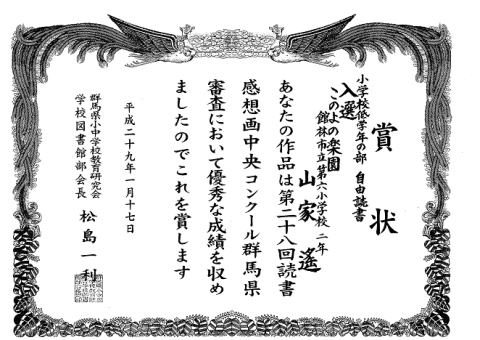 賞状
小学校低学年の部 自由読書
入選
このよの楽園
館林市立第六小学校 二年
山家 遙
あなたの作品は第二十八回読書
感想画中央コンクール群馬県
審査において優秀な成績を収め
ましたのでこれを賞します
平成二十九年一月十七日
群馬県小中学校教育研究会
学校図書館部会長 松島一利